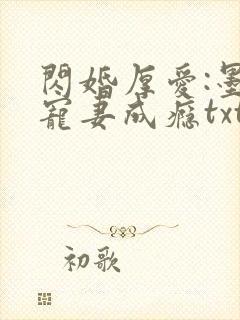 閃婚厚愛:墨
寵妻成癮txt
初歌